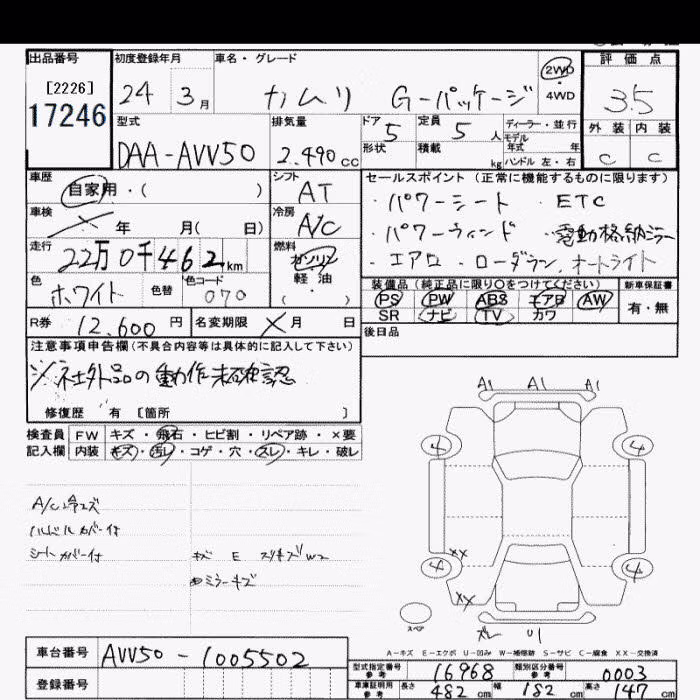 出品番号
[2226]
17246
初度登録年月
24年 3月
車名・グレード
カムリ G-パッケージ
2WD
4WD
評価点
3.5
外装 内装
C C
型式
DAA-AVV50
排気量
2.490cc
ドア
5
形状
定員
5人
積載
kg
ディーラー・並行
モデル
年式 年
ハンドル 左・右
車歴
自家用・( )
シフト
AT
セールスポイント (正常に機能するものに限ります)
・パワーシート ・ETC
・パワーウィンド ・電動格納ミラー
・エアロ ・ローダウン、オートライト
車検
年 月( 日)
冷房
A/C
走行
22万0千462km
燃料
ガソリン
軽・油
( )
色
ホワイト
色替
色コード
070
装備品 (純正品に限り○をつけてください)
PS PW ABS エアB AW
SR ナビ TV カワ
新車保証書
有・無
R券 12,600円
名変期限 ×月 日
後日品
注意事項申告欄(不具合内容等は具体的に記入して下さい)
※社外品の動作未確認
修復歴 有 [箇所 ]
検査員 FW キズ・飛石・ヒビ割・リペア跡・×要
記入欄 内装 キズ・汚レ・コゲ・穴・スレ・キレ・破レ
A/C冷エズ
ハンドルカバー付
シートカバー付
キズ E スリキズ W2
ミラーキズ
A1 A1 A1
4 4
XX
4 4
XX
スペア
ズレ U1
A-キズ E-エクボ U-凹み W-補修跡 S-サビ C-腐食 XX-交換済
車台番号 AVV50-1005502
登録番号
型式指定番号 参考 16968
類別区分番号 参考 0003
車庫証明用 参考 長さ 482cm 幅 182cm 高さ 147cm